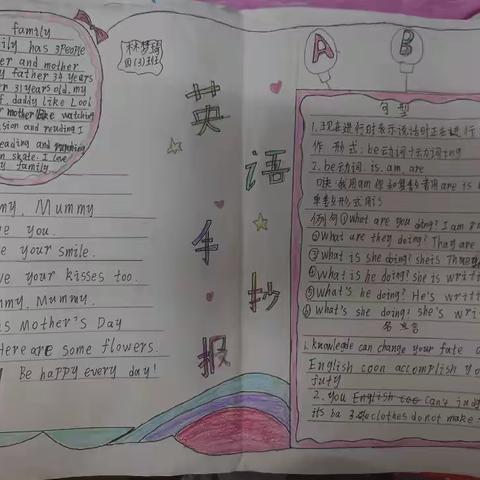 family
ily has 3People
er and mother
y father 34 years
r 31 years old. my
f. daddy like Look
r mother like watching
sion and reading I
eading and
n skate. I love
y family
林梦琦
四(3)班
英
语
手
抄
报
my, Mummy
e you.
e your smile.
ve your kisses too.
mmy, Mummy.
s Mother's Day
Here are some flowers.
Be happy every day!
A
B
句型
1. 现在进行时表示说话时正在进行
作 形式: be动词+动词ing
2. be动词. is. am. are
例句 ① What are you doing? I am
② What are they doing? They are
③ What is she doing? she is
④ What is he doing? she is writ
⑤ What's he doing? He's writt
⑥ What's she doing? she's wri
名言
1. knowleade can change your fate
English coon accomplish yo
futy
2. you English can't jud
its ba 3. clothes do not make